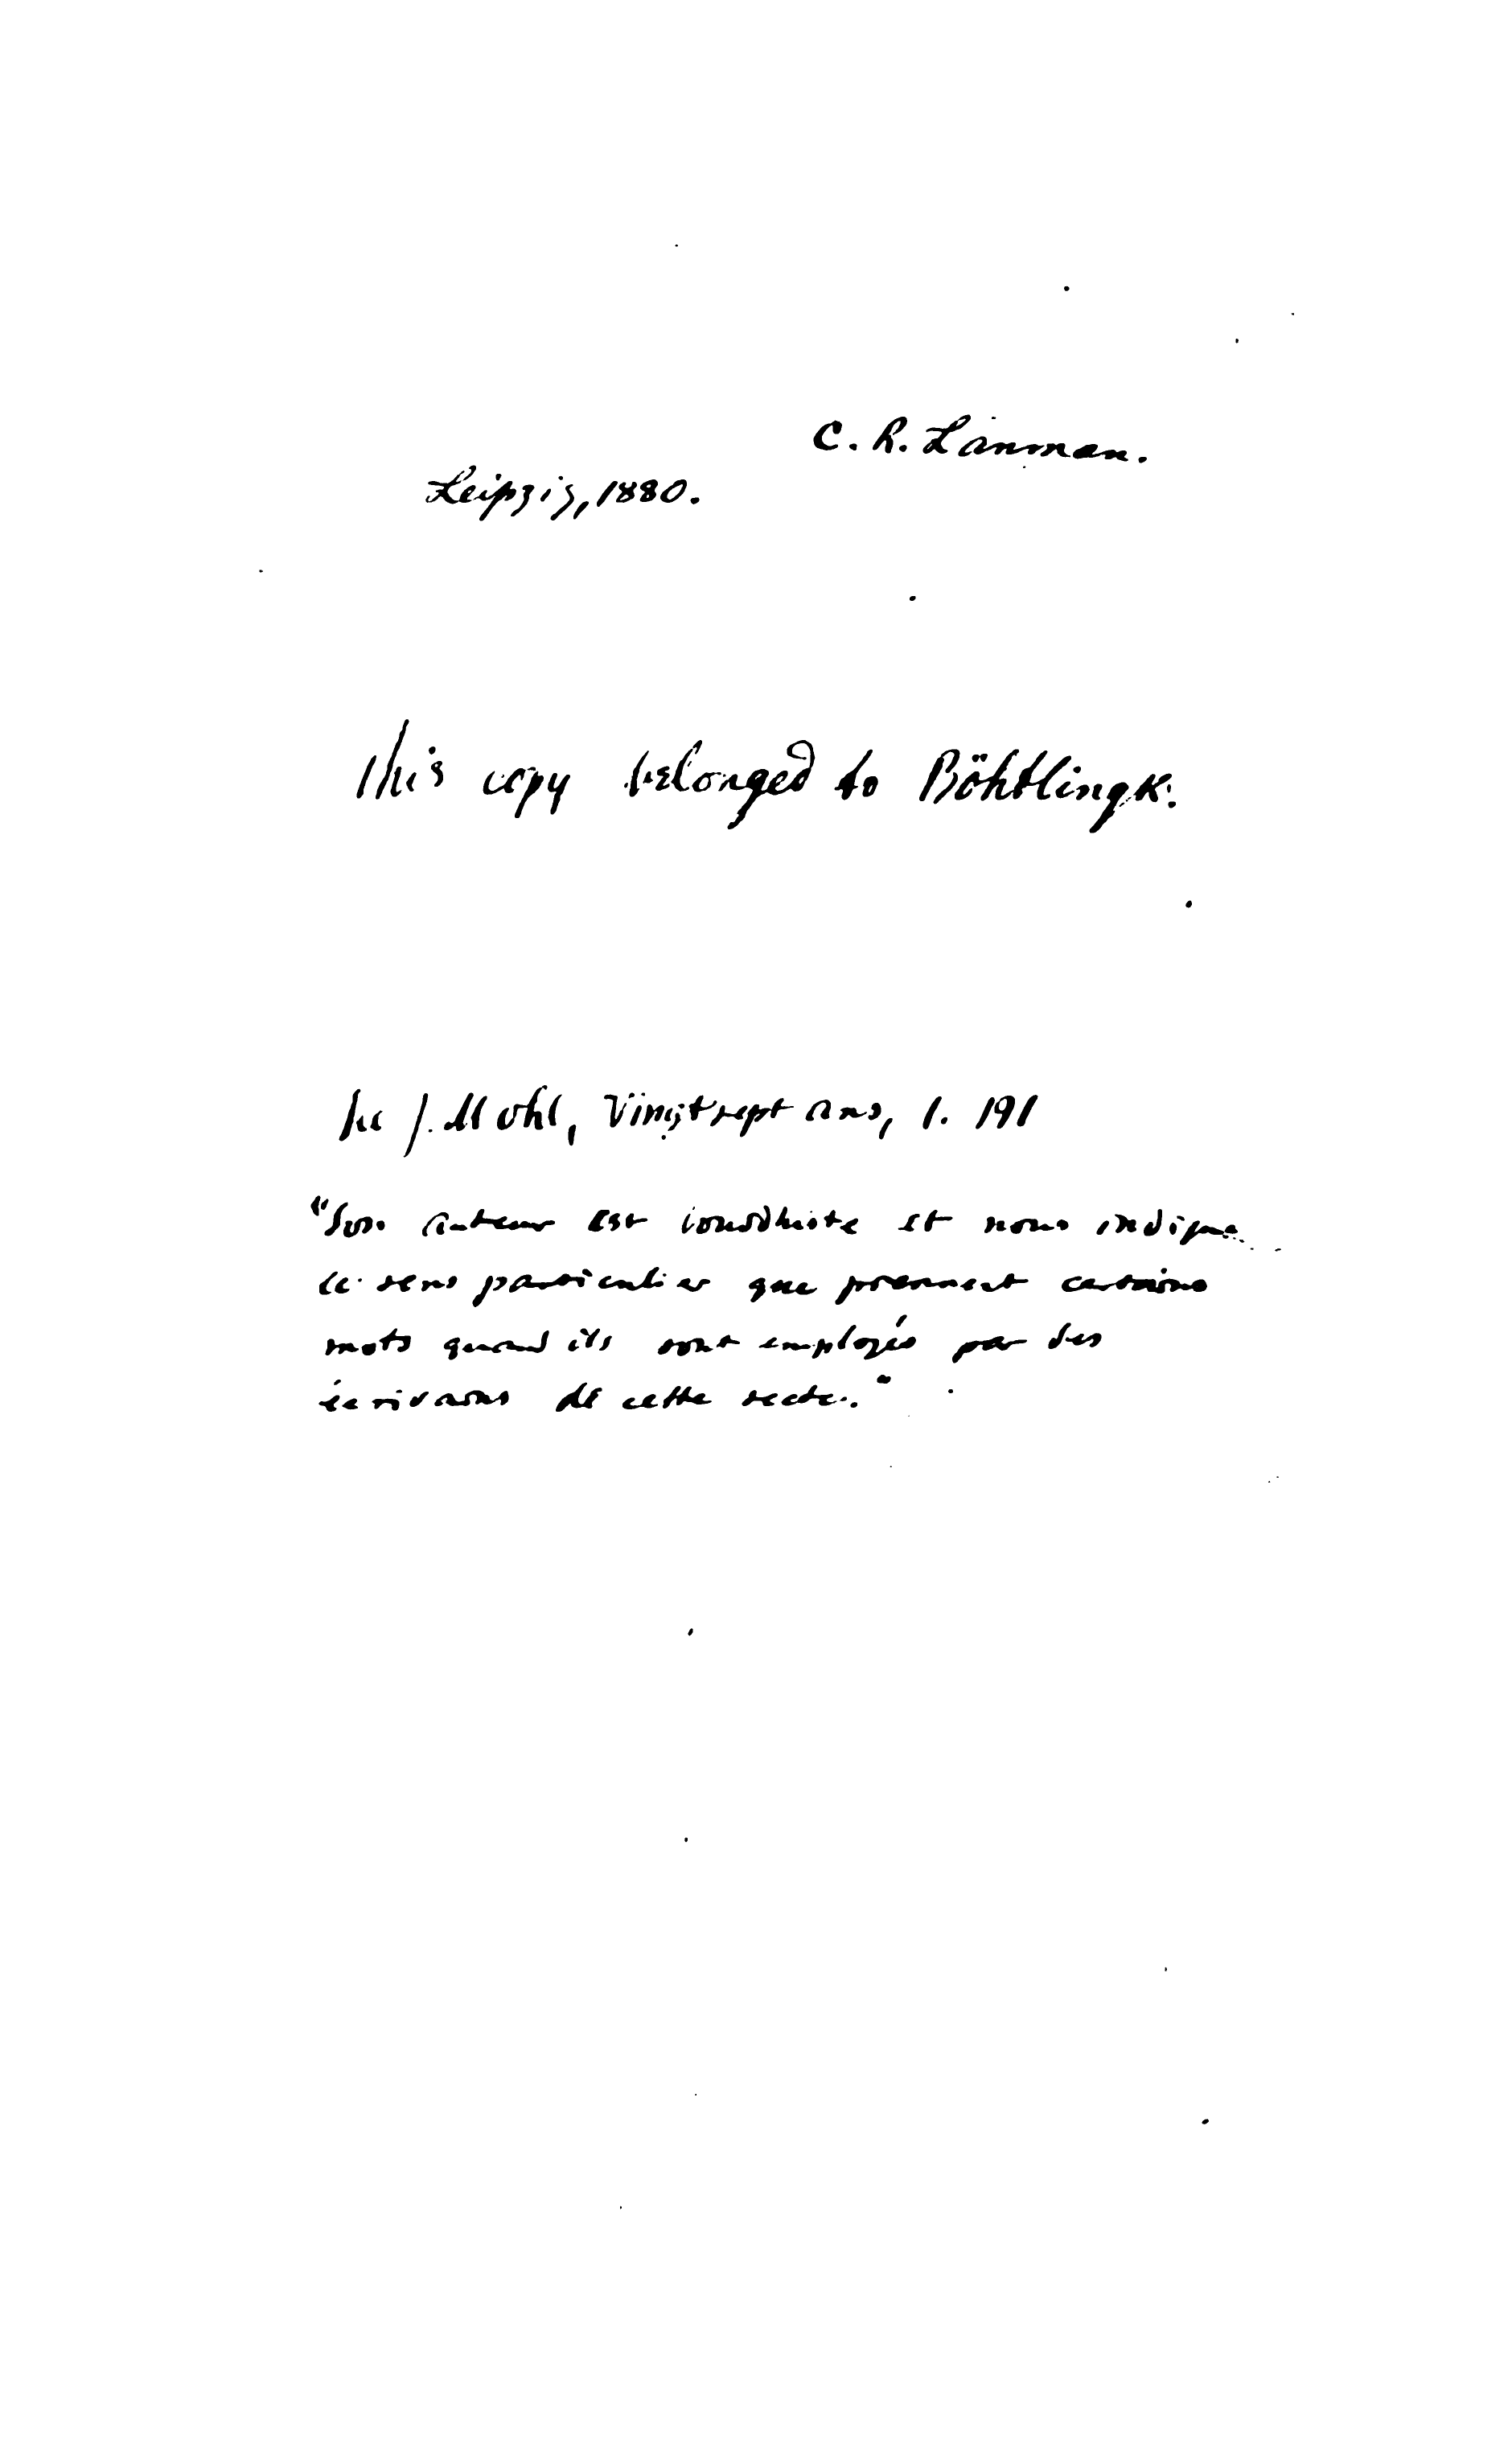 C. R. Lanman.
Leipzig, 1880.
This copy belonged to Böhtlingk.
See J. Mohl, Vingt sept ans, 1. 191
"Son auteur est bouddhiste et nous indique
le sens particulier que prennent certains
mots quand ils sont employés par des
écrivains de cette secte."